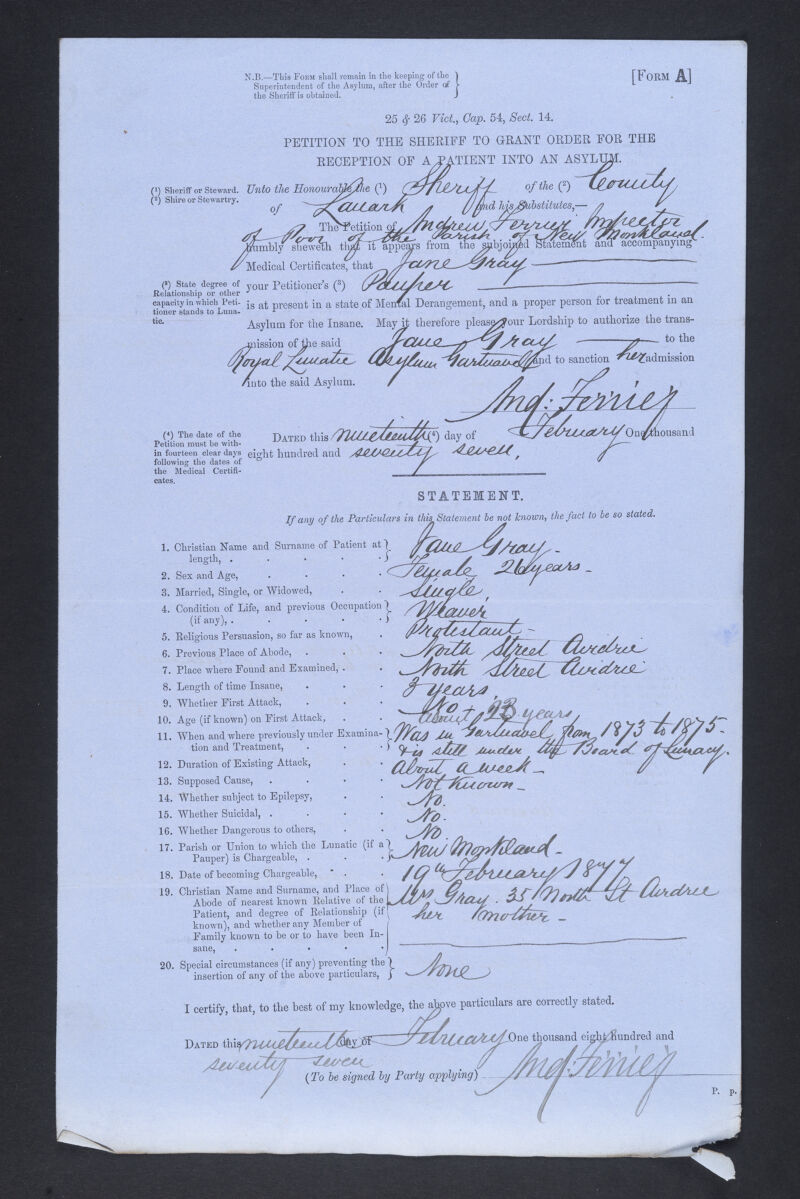 N.B.—This Form shall remain in the keeping of the
Superintendent of the Asylum, after the Order of
the Sheriff is obtained.
[Form A]
25 & 26 Vict., Cap. 54, Sect. 14.
PETITION TO THE SHERIFF TO GRANT ORDER FOR THE
RECEPTION OF A PATIENT INTO AN ASYLUM.
(1) Sheriff or Steward.
(2) Shire or Stewartry.
Unto the Honourable the (1) Sheriff of the (2) County
of Lanark and his Substitutes,—
The Petition of Andrew Ferrier Inspector
of Poor of the Parish of New Monkland
humbly sheweth that it appears from the subjoined Statement and accompanying
Medical Certificates, that Jane Gray
(3) State degree of
Relationship or other
capacity in which Peti-
tioner stands to Luna-
tic.
your Petitioner's (3) Pauper
is at present in a state of Mental Derangement, and a proper person for treatment in an
Asylum for the Insane. May it therefore please your Lordship to authorize the trans-
mission of the said Jane Gray to the
Royal Lunatic Asylum Gartnavel and to sanction her admission
into the said Asylum.
And: Ferrier
(4) The date of the
Petition must be with-
in fourteen clear days
following the dates of
the Medical Certifi-
cates.
Dated this nineteenth (4) day of February One thousand
eight hundred and seventy seven.
STATEMENT.
If any of the Particulars in this Statement be not known, the fact to be so stated.
1. Christian Name and Surname of Patient at
length, . . . . . Jane Gray -
2. Sex and Age, . . . . Female 26 years -
3. Married, Single, or Widowed, . . Single
4. Condition of Life, and previous Occupation
(if any), . . . . . Weaver
5. Religious Persuasion, so far as known, . Protestant -
6. Previous Place of Abode, . . . North Street Airdrie
7. Place where Found and Examined, . . North Street Airdrie
8. Length of time Insane, . . . 3 years
9. Whether First Attack, . . . No -
10. Age (if known) on First Attack, . . about 23 years
11. When and where previously under Examina-
tion and Treatment, . . . Was in Gartnavel from 1873 to 1875 -
& is still under the Board of Lunacy.
12. Duration of Existing Attack, . . About a week -
13. Supposed Cause, . . . . Not Known -
14. Whether subject to Epilepsy, . . No.
15. Whether Suicidal, . . . . No.
16. Whether Dangerous to others, . . No
17. Parish or Union to which the Lunatic (if a
Pauper) is Chargeable, . . . New Monkland -
18. Date of becoming Chargeable, . . 19th February 1877
19. Christian Name and Surname, and Place of
Abode of nearest known Relative of the
Patient, and degree of Relationship (if
known), and whether any Member of
Family known to be or to have been In-
sane, . . . . . .
Mrs Gray. 35 North St Airdrie
her mother -
20. Special circumstances (if any) preventing the
insertion of any of the above particulars, None
I certify, that, to the best of my knowledge, the above particulars are correctly stated.
Dated this nineteenth day of February One thousand eight hundred and
seventy seven
(To be signed by Party applying) And: Ferrier
P. P.